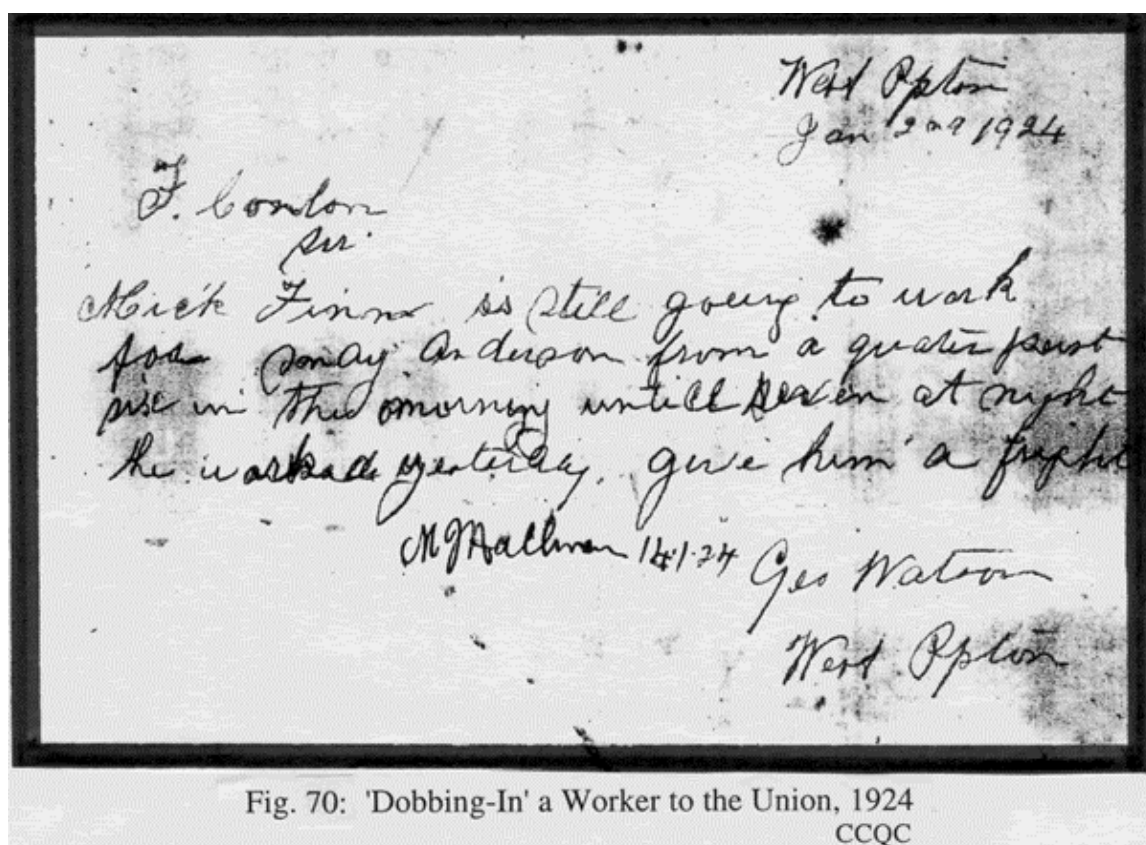 West Rpton
Jan 2nd 1924
F. Conlon
Sir.
Mick Finn is still going to work
for Anderson from a quater past
six in the morning untill seven at night
he worked yesterday. give him a fright
14.1.24
Geo Watson
West Rpton
Fig. 70: 'Dobbing-In' a Worker to the Union, 1924
CCQC